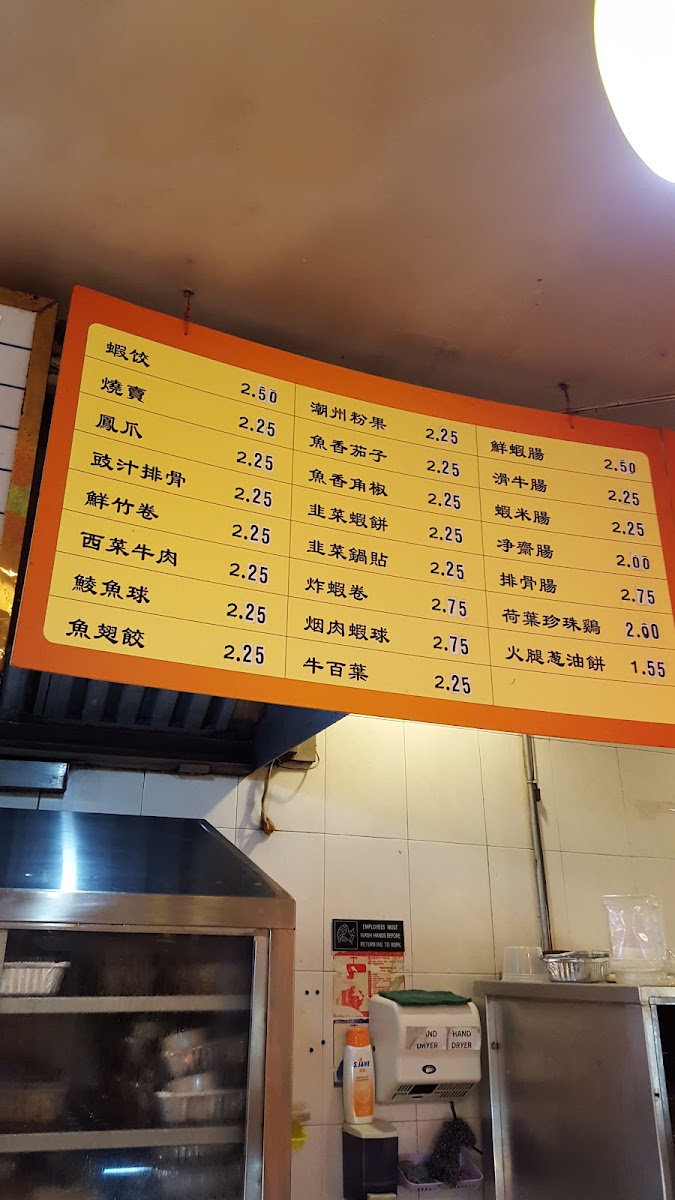 蝦饺 2.50
燒賣 2.25
鳳爪 2.25
豉汁排骨 2.25
鮮竹卷 2.25
西菜牛肉 2.25
鲮魚球 2.25
魚翅餃 2.25
潮州粉果 2.25
魚香茄子 2.25
魚香角椒 2.25
韭菜蝦餅 2.25
韭菜鍋貼 2.25
炸蝦卷 2.75
烟肉蝦球 2.75
牛百葉 2.25
鮮蝦腸 2.50
滑牛腸 2.25
蝦米腸 2.25
净齋腸 2.00
排骨腸 2.75
荷葉珍珠鷄 2.00
火腿葱油餅 1.55
EMPLOYEES MUST
WASH HANDS BEFORE
RETURNING TO WORK
HAND
DRYER
HAND
DRYER